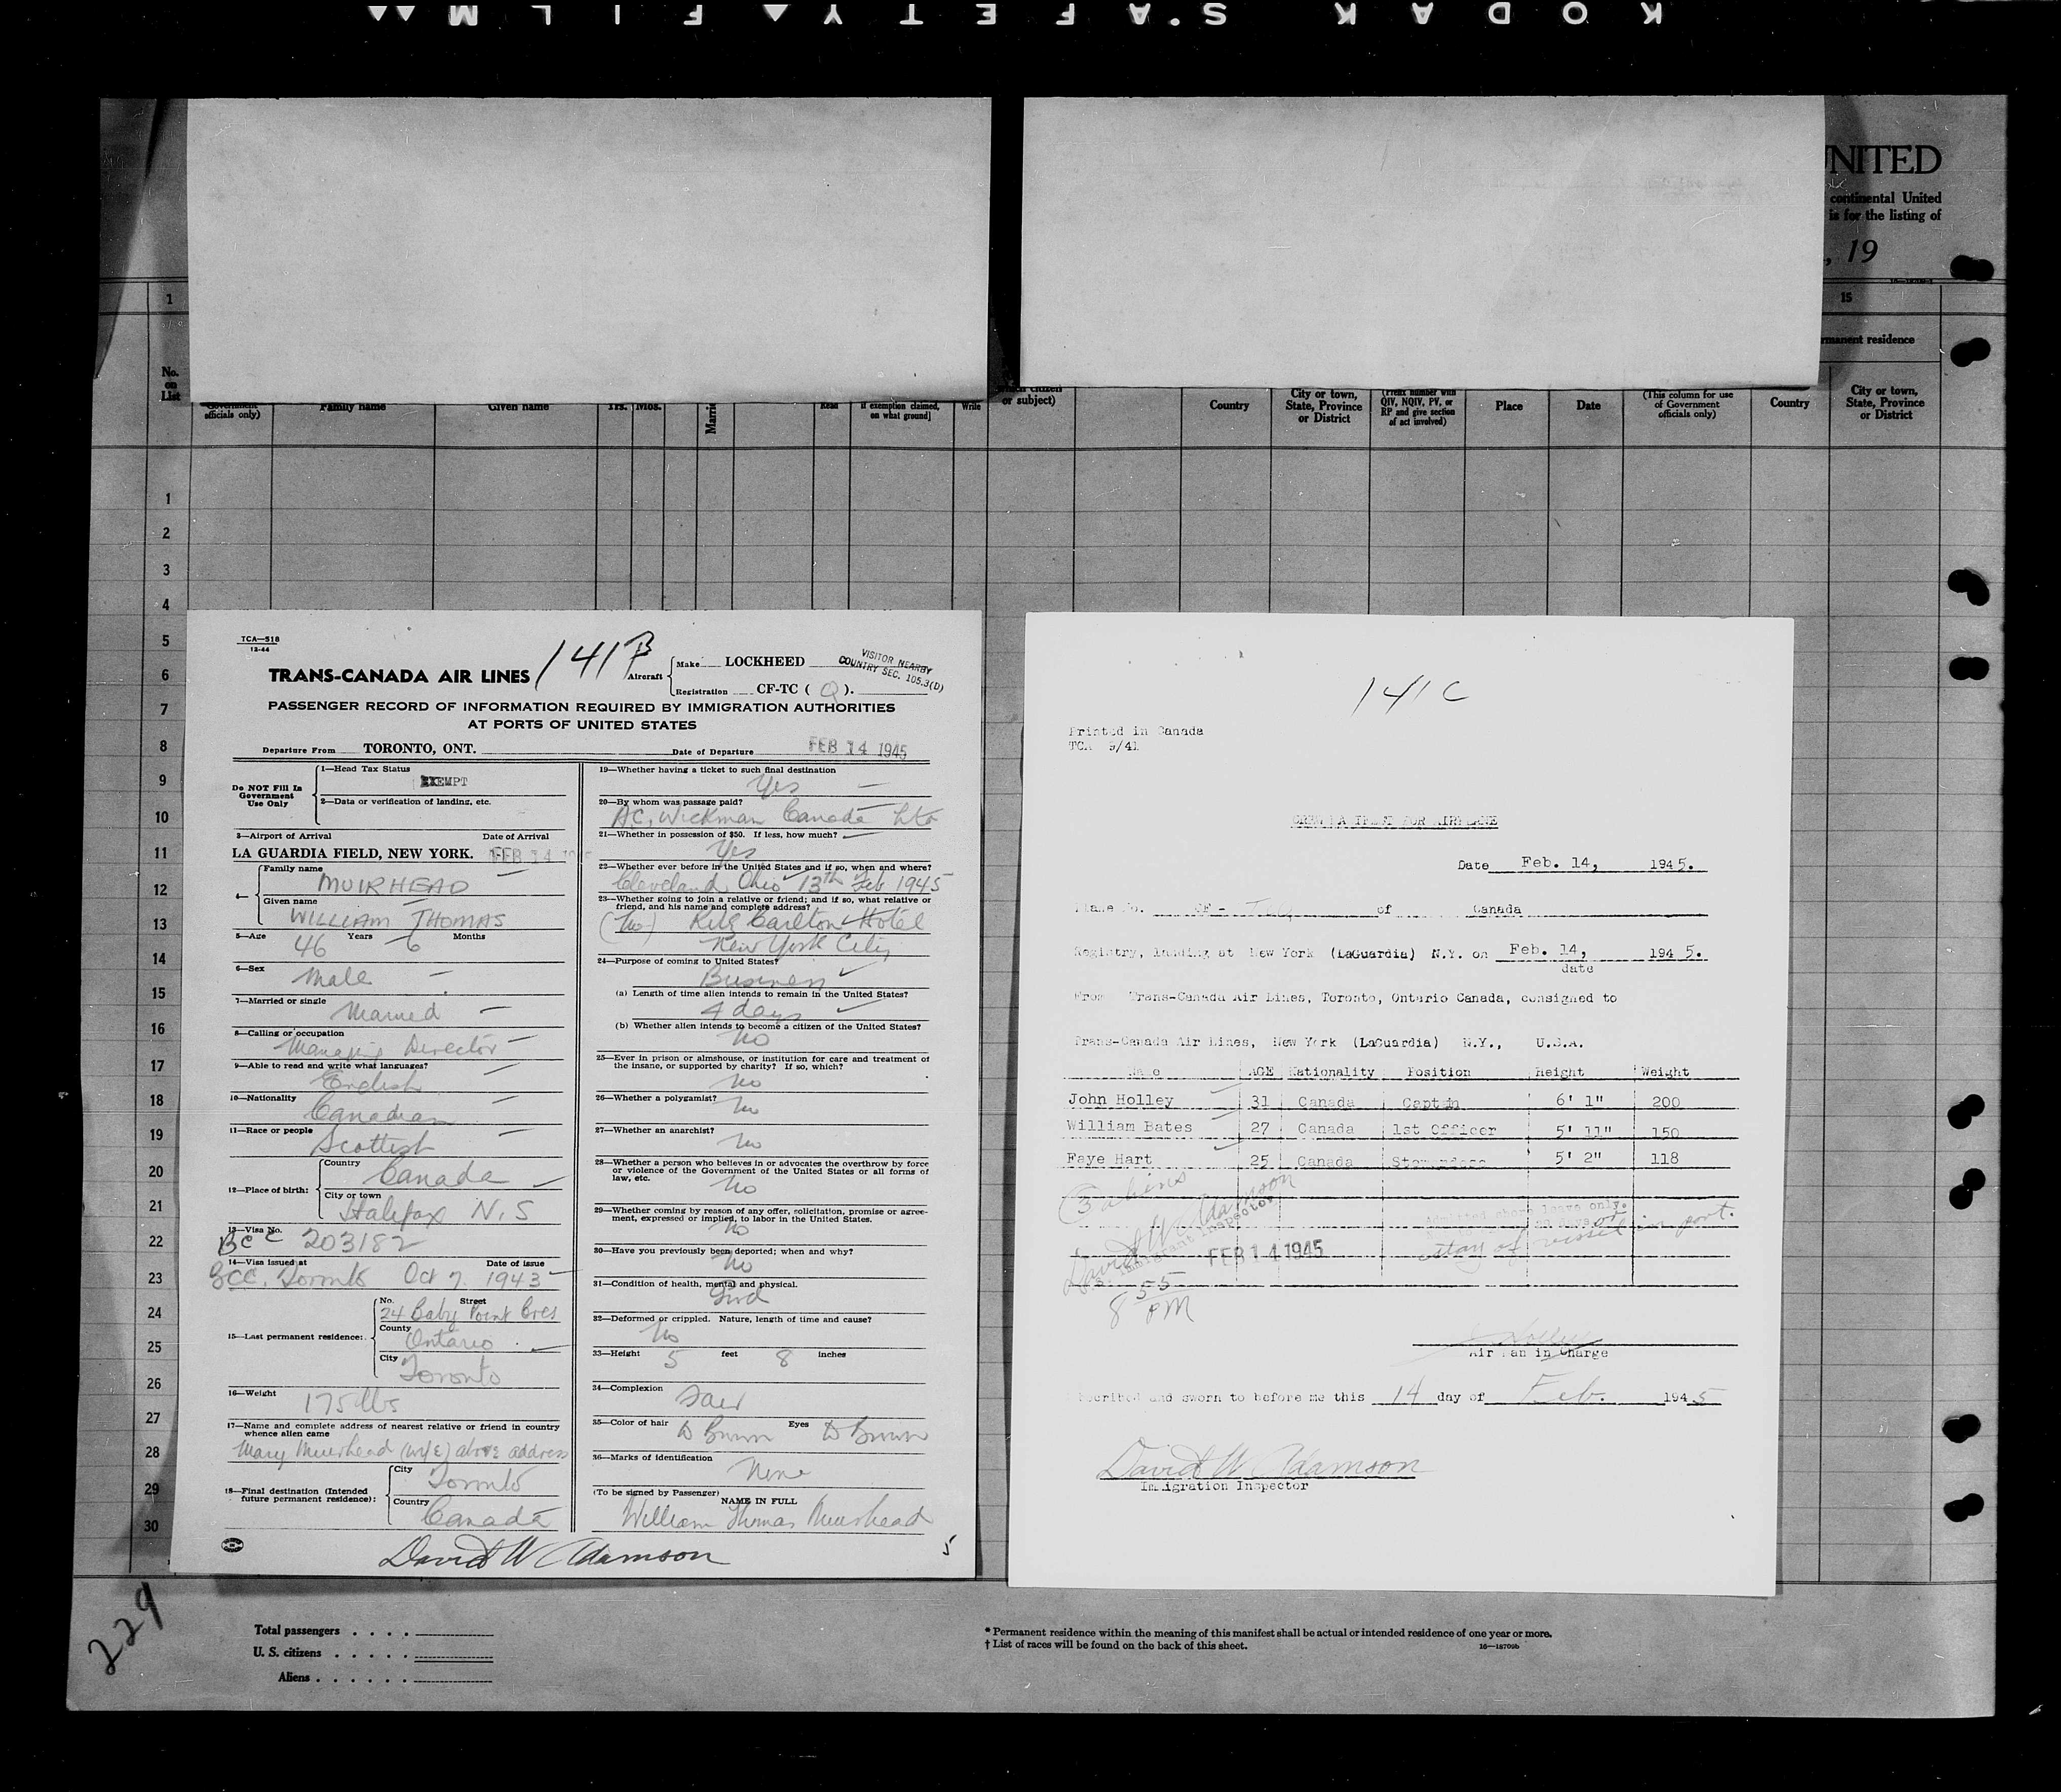 KODAK S'AFETY FILM
UNITED
continental United
is for the listing of
, 19
1
15
permanent residence
No.
on
List
Government
officials only)
Family name
Given name
Yrs.
Mos.
Read
[if exemption claimed,
on what ground]
Write
which citizen
or subject)
Country
City or town,
State, Province
or District
(Prefix number with
QIV, NQIV, PV, or
RP and give section
of act involved)
Place
Date
(This column for use
of Government
officials only)
Country
City or town,
State, Province
or District
1
2
3
4
5
6
7
8
9
10
11
12
13
14
15
16
17
18
19
20
21
22
23
24
25
26
27
28
29
30
TCA—518
12-44
141B
TRANS-CANADA AIR LINES
Aircraft
Make LOCKHEED
Registration CF-TC ( Q ).
VISITOR NEARBY
COUNTRY SEC. 105.3(D)
PASSENGER RECORD OF INFORMATION REQUIRED BY IMMIGRATION AUTHORITIES
AT PORTS OF UNITED STATES
Departure From TORONTO, ONT. Date of Departure FEB 14 1945
Do NOT Fill In
Government
Use Only
1—Head Tax Status
EXEMPT
2—Data or verification of landing, etc.
3—Airport of Arrival Date of Arrival
LA GUARDIA FIELD, NEW YORK. FEB 14 1945
4— Family name
MUIRHEAD
Given name
WILLIAM THOMAS
5—Age 46 Years 6 Months
6—Sex
Male
7—Married or single
Married
8—Calling or occupation
Managing Director
9—Able to read and write what languages?
English
10—Nationality
Canadian
11—Race or people
Scottish
12—Place of birth:
Country
Canada
City or town
Halifax N.S
13—Visa No.
BCC 203182
14—Visa issued at Date of issue
BCC. Toronto Oct 7. 1943
15—Last permanent residence:
No. Street
24 Baby Point Cres
County
Ontario
City
Toronto
16—Weight
175 lbs
17—Name and complete address of nearest relative or friend in country
whence alien came
Mary Muirhead (wife) above address
18—Final destination (Intended
future permanent residence):
City
Toronto
Country
Canada
19—Whether having a ticket to such final destination
Yes
20—By whom was passage paid?
A.C. Wickman Canada Ltd
21—Whether in possession of $50. If less, how much?
Yes
22—Whether ever before in the United States and if so, when and where?
Cleveland Ohio 13th Feb 1945
23—Whether going to join a relative or friend; and if so, what relative or
friend, and his name and complete address?
(No) Ritz Carlton Hotel
New York City
24—Purpose of coming to United States?
Business
(a) Length of time alien intends to remain in the United States?
4 days
(b) Whether alien intends to become a citizen of the United States?
No
25—Ever in prison or almshouse, or institution for care and treatment of
the insane, or supported by charity? If so, which?
No
26—Whether a polygamist?
No
27—Whether an anarchist?
No
28—Whether a person who believes in or advocates the overthrow by force
or violence of the Government of the United States or all forms of
law, etc.
No
29—Whether coming by reason of any offer, solicitation, promise or agree-
ment, expressed or implied, to labor in the United States.
No
30—Have you previously been deported; when and why?
No
31—Condition of health, mental and physical.
Good
32—Deformed or crippled. Nature, length of time and cause?
No
33—Height 5 feet 8 inches
34—Complexion
Fair
35—Color of hair D Brown Eyes D Brown
36—Marks of identification
None
(To be signed by Passenger)
NAME IN FULL
William Thomas Muirhead
David W Adamson
5
141C
Printed in Canada
TCA 5/41
CREW MANIFEST FOR AIRPLANE
Date Feb. 14, 1945.
Plane No. CF- TCQ of Canada
Registry, landing at New York (LaGuardia) N.Y. on Feb. 14, 1945.
date
From Trans-Canada Air Lines, Toronto, Ontario Canada, consigned to
Trans-Canada Air Lines, New York (LaGuardia) N.Y., U.S.A.
Name AGE Nationality Position Height Weight
John Holley 31 Canada Captain 6' 1" 200
William Bates 27 Canada 1st Officer 5' 11" 150
Faye Hart 25 Canada Stewardess 5' 2" 118
3 aliens
David W Adamson
U.S. Immigrant Inspector
Admitted shore leave only.
stay of vessel in port.
FEB 14 1945
8 55 PM
J Holley
Air Man in Charge
Subscribed and sworn to before me this 14 day of Feb. 1945
David W Adamson
Immigration Inspector
229
Total passengers . . . .
U. S. citizens . . . . .
Aliens . . . . . .
* Permanent residence within the meaning of this manifest shall be actual or intended residence of one year or more.
† List of races will be found on the back of this sheet.
16—18709b